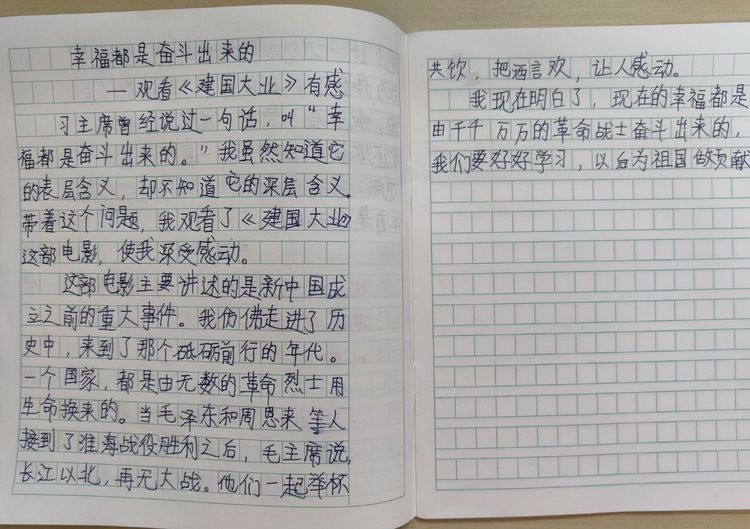 幸福都是奋斗出来的
—观看《建国大业》有感
习主席曾经说过一句话，叫“幸
福都是奋斗出来的。”我虽然知道它
的表层含义，却不知道它的深层含义。
带着这个问题，我观看了《建国大业》
这部电影，使我深受感动。
这部电影主要讲述的是新中国成
立之前的重大事件。我仿佛走进了历
史中，来到了那个砥砺前行的年代。
一个国家，都是由无数的革命烈士用
生命换来的。当毛泽东和周恩来等人
接到了淮海战役胜利之后，毛主席说，
长江以北，再无大战。他们一起举杯
共饮，把酒言欢，让人感动。
我现在明白了，现在的幸福都是
由千千万万的革命战士奋斗出来的，
我们要好好学习，以后为祖国做贡献